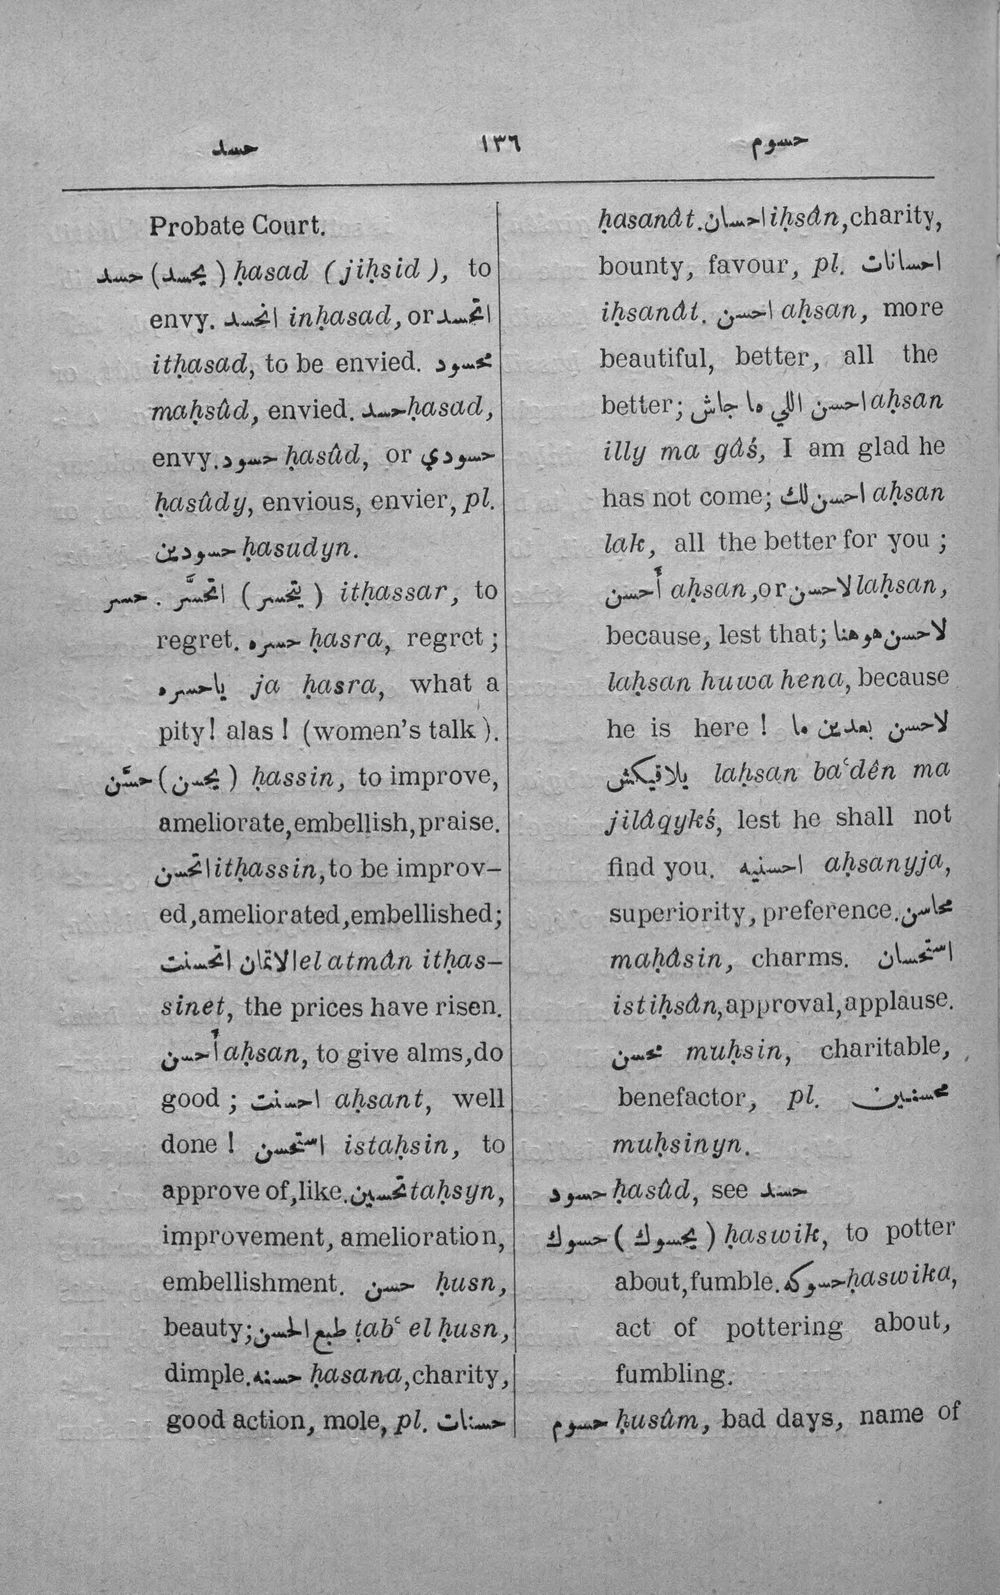 حسد ١٣٦ حسوم
Probate Court.
حسد (يحسد) ḥasad (jiḥsid), to
envy. انحسد inḥasad, or اتحسد
itḥasad, to be envied. محسود
maḥsûd, envied. حسد ḥasad,
envy. حسود ḥasûd, or حسودي
ḥasûdy, envious, envier, pl.
حسودين ḥasudyn.
حسر . اتحسَّر (يتحسر) itḥassar, to
regret. حسره ḥasra, regret ;
ياحسره ja ḥasra, what a
pity! alas ! (women's talk ).
حسَّن (يحسن) ḥassin, to improve,
ameliorate, embellish, praise.
اتحسن itḥassin, to be improv-
ed, ameliorated, embellished;
الاتمان اتحسنت el atmân itḥas-
sinet, the prices have risen.
أحسن aḥsan, to give alms, do
good ; احسنت aḥsant, well
done ! استحسن istaḥsin, to
approve of, like. تحسين taḥsyn,
improvement, amelioration,
embellishment. حسن ḥusn,
beauty; طبع الحسن ṭabʿ el ḥusn,
dimple. حسنه ḥasana, charity,
good action, mole, pl. حسنات
ḥasanât. احسان iḥsân, charity,
bounty, favour, pl. احسانات
iḥsanât. احسن aḥsan, more
beautiful, better, all the
better; احسن اللي ما جاش aḥsan
illy ma gâś, I am glad he
has not come; احسن لك aḥsan
lak, all the better for you ;
أحسن aḥsan, or لاحسن laḥsan,
because, lest that; لاحسن هو هنا
laḥsan huwa hena, because
he is here ! لاحسن بعدين ما
يلاقيكش laḥsan baʿdên ma
jilâqykś, lest he shall not
find you. احسنيه aḥsanyja,
superiority, preference. محاسن
maḥâsin, charms. استحسان
istiḥsân, approval, applause.
محسن muḥsin, charitable,
benefactor, pl. محسنين
muḥsinyn.
حسود ḥasûd, see حسد
حسوك (يحسوك) ḥaswik, to potter
about, fumble. حسوكه ḥaswika,
act of pottering about,
fumbling.
حسوم ḥusûm, bad days, name of